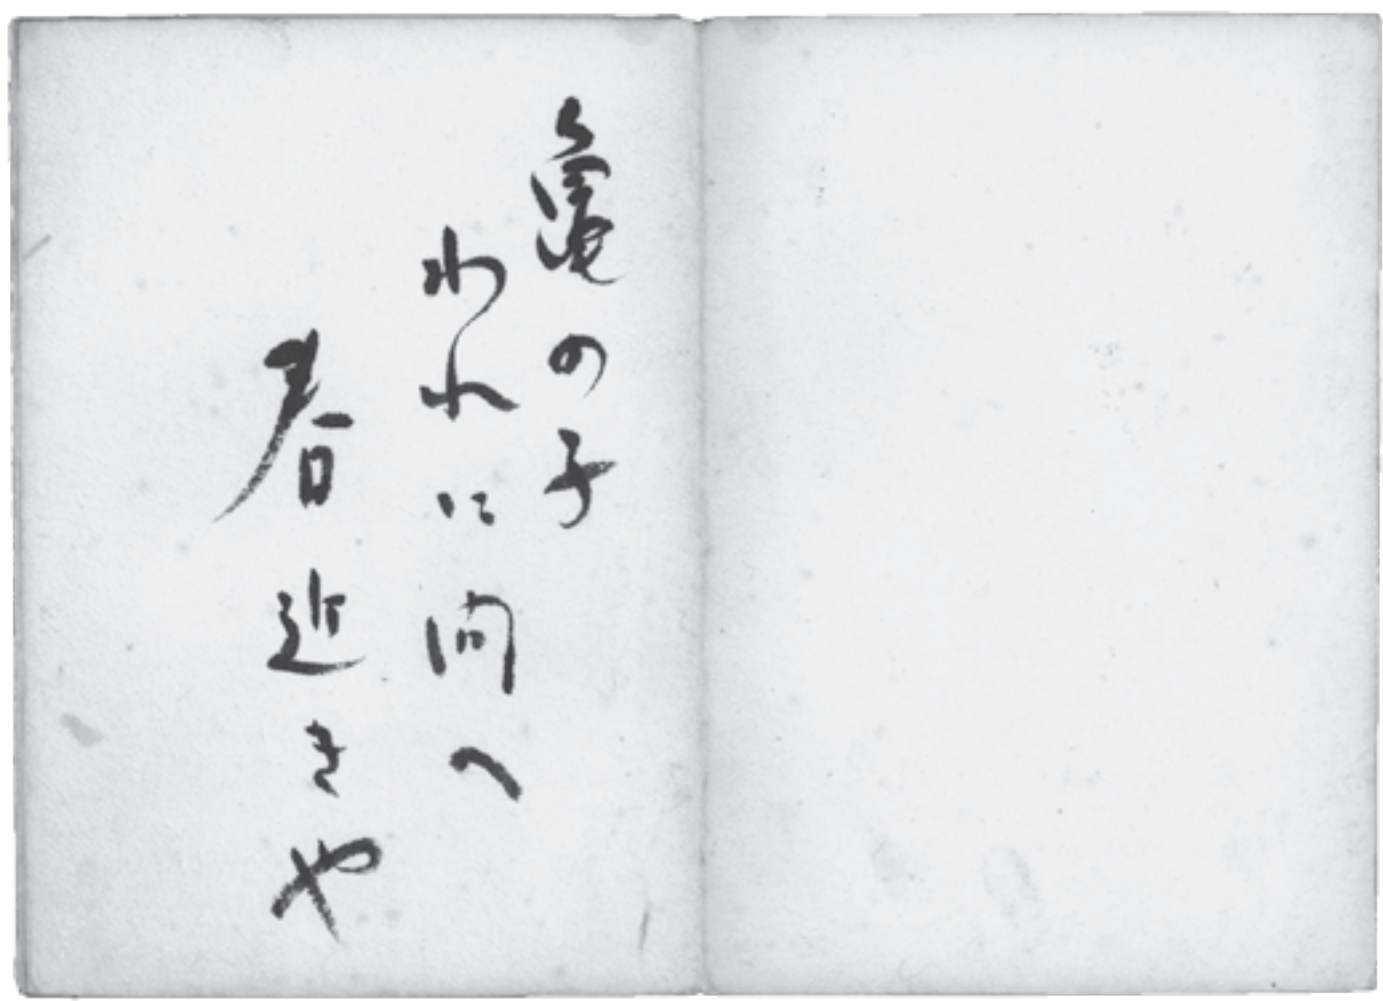 亀の子
われに問へ
春近きや